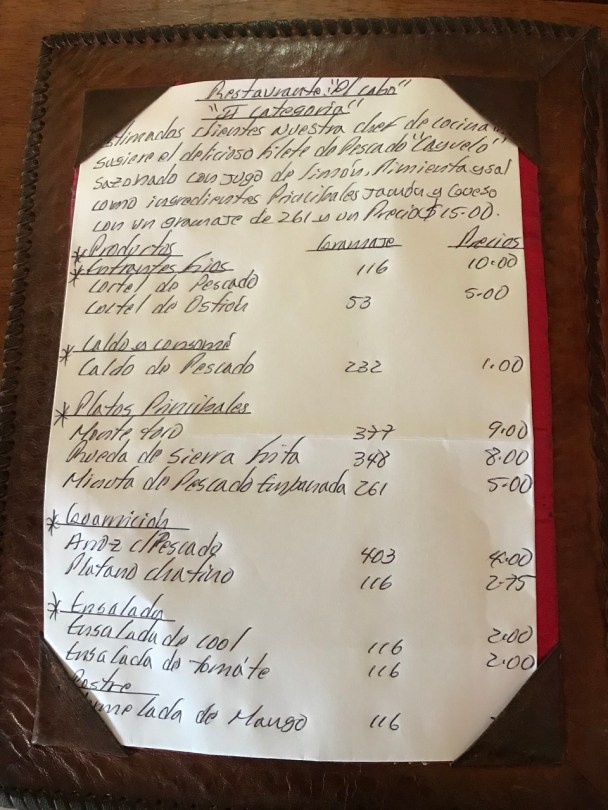 Restaurante "El Cabo"
"II Categoria"
Estimados Clientes Nuestra chef de cocina
sugiere el delicioso filete de Pescado "Canuelo"
Sazonado con jugo de limón, Pimienta y sal
como ingredientes Principales Jamón y Queso
con un gramaje de 261 y un Precio $15.00.
* Productos Gramaje Precios
* Entrantes frios
Coctel de Pescado 116 10.00
Coctel de Ostión 53 5.00
* Caldo y consomé
Caldo de Pescado 232 1.00
* Platos Principales
Monte toro 377 9.00
Rueda de Sierra frita 348 8.00
Minuta de Pescado Empanada 261 5.00
* Guarnición
Arroz c/Pescado 403 4.00
Platano chatino 116 2.75
* Ensalada
Ensalada de cool 116 2.00
Ensalada de tomáte 116 2.00
Postre
Mermelada de Mango 116